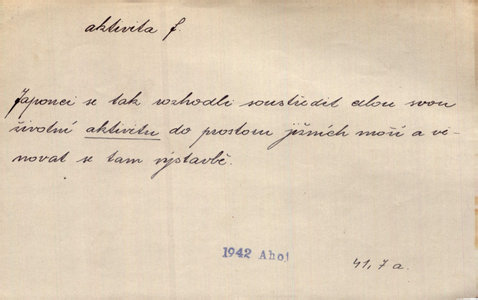 aktivita f.
Japonci se tak rozhodli soustředit celou svou
životní aktivitu do prostoru jižních moří a vě-
novat se tam výstavbě.
1942 Ahoj
41, 7 a.